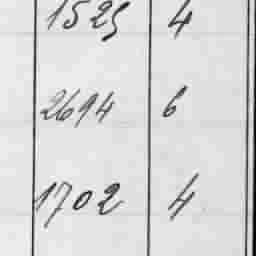 1525 4
2694 6
1702 4